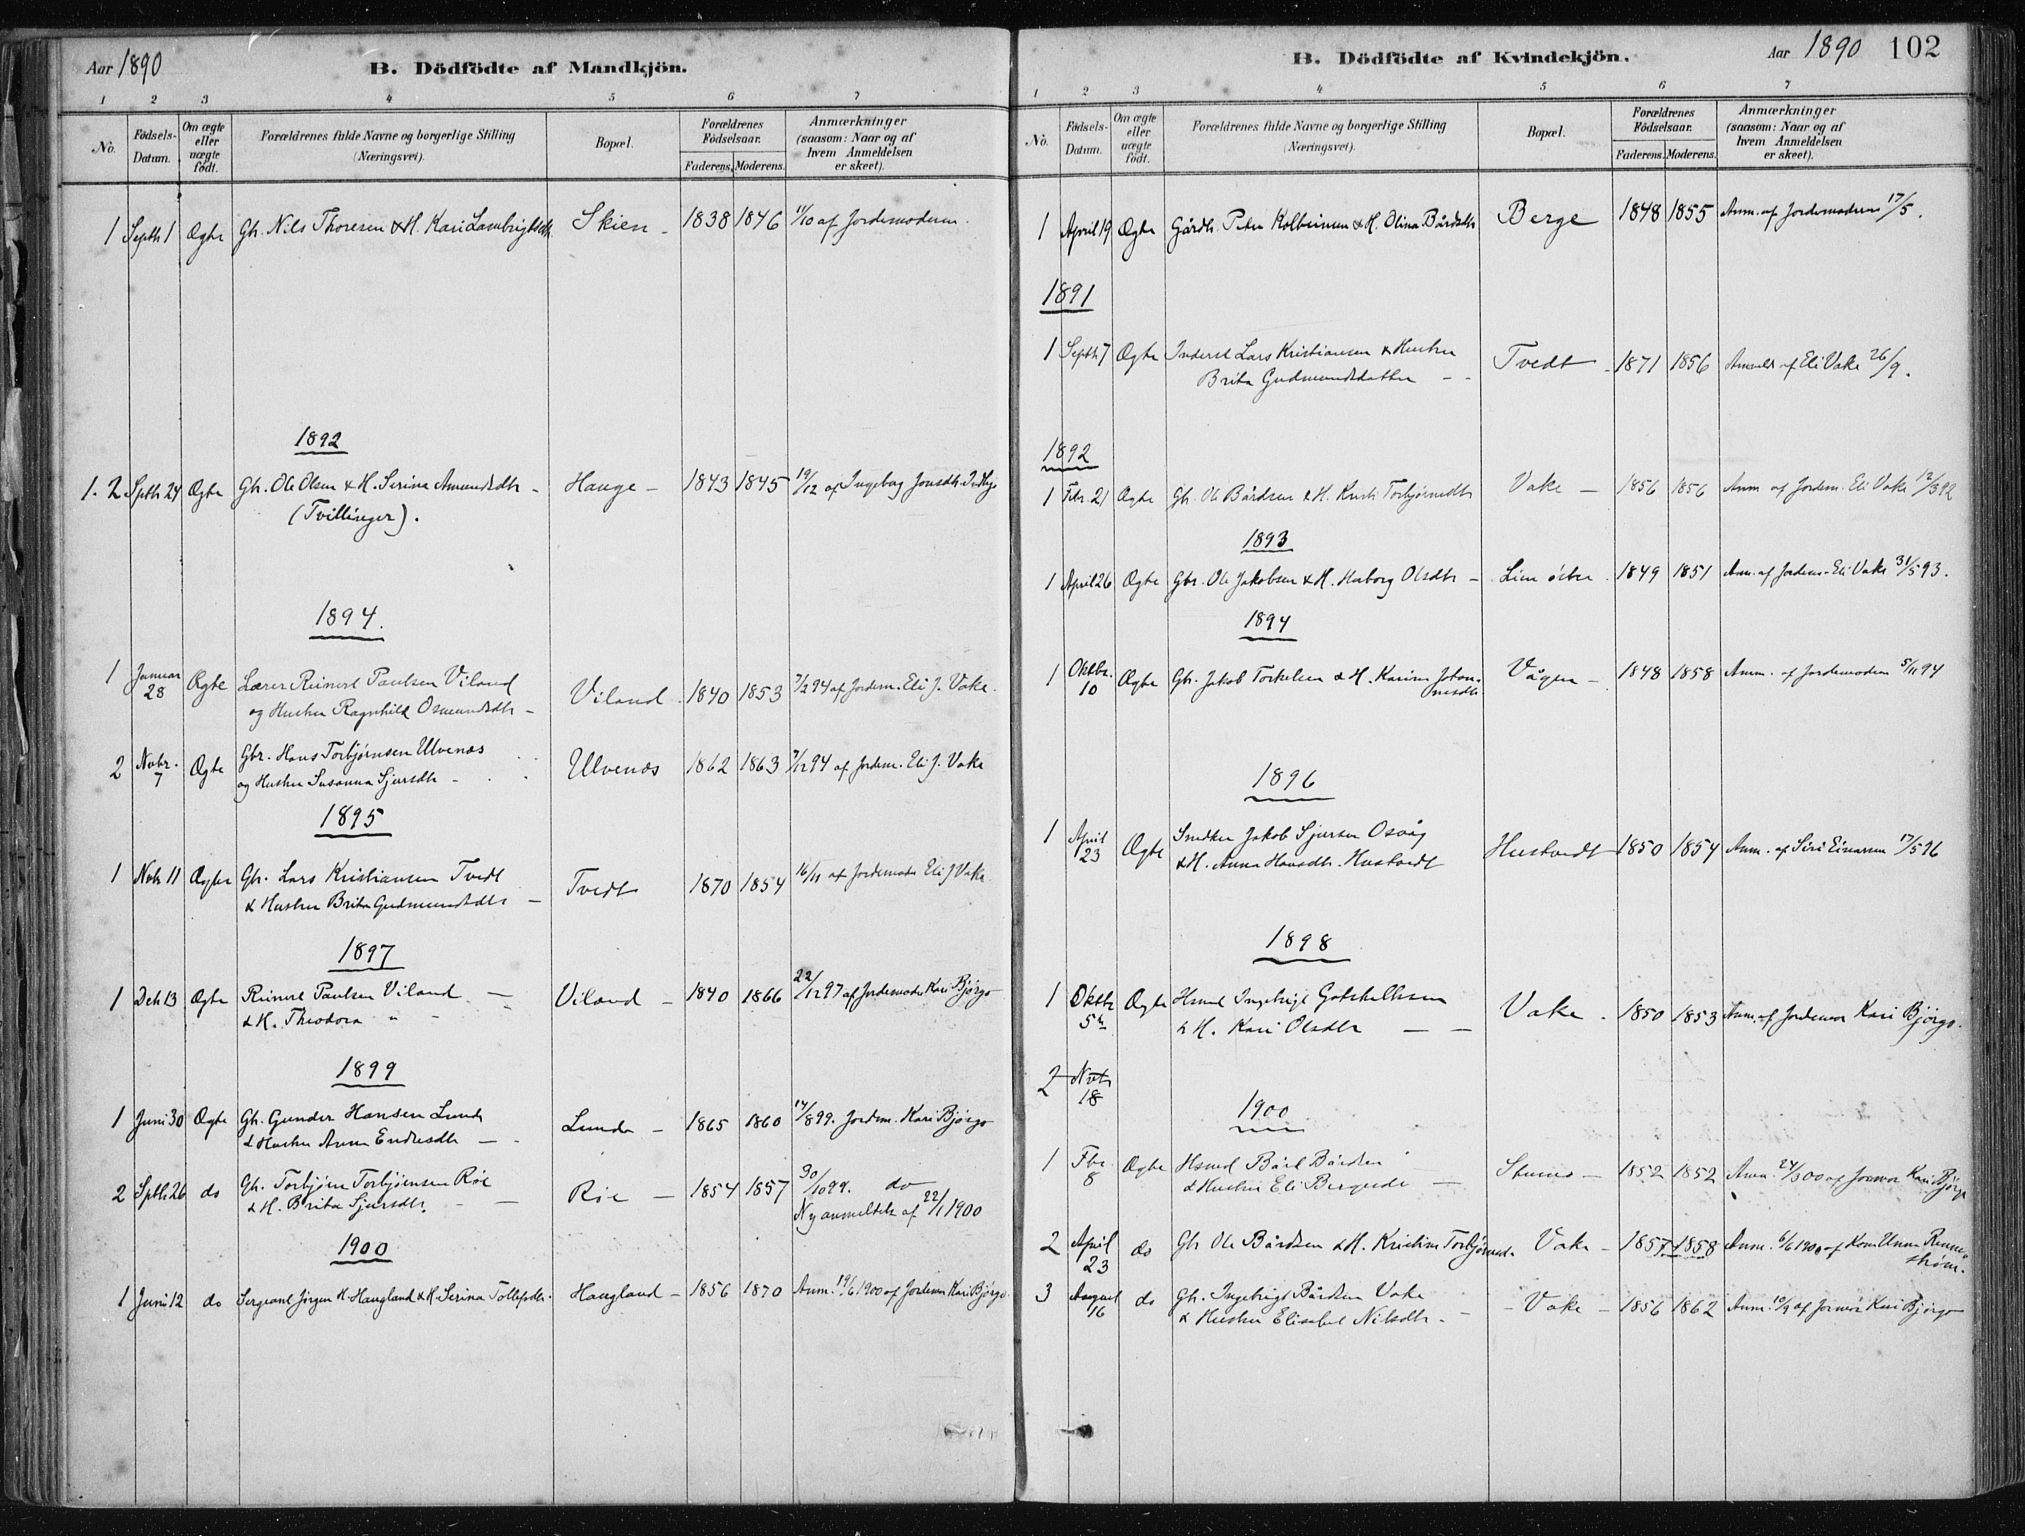 Aar 1890
B. Dödfödte af Mandkjön.
1 2 3 4 5 6 7
No.
Födsels-Datum.
Om ægte eller uægte födt.
Forældrenes fulde Navne og borgerlige Stilling (Næringsvei).
Bopæl.
Forældrenes Födselsaar.
Faderens. Moderens.
Anmærkninger (saasom: Naar og af hvem Anmeldelsen er skeet).
1 Septb 1 Ægte Gbr. Nils Thoresen & H. Kari Lambrigtsdtr. Skien - 1838 1846 11/10 af Jordemoderen.
1892
1. 2 Sptb 24 Ægte Gbr. Ole Olsen & H. Serina Amundsdtr - Hauge - 1843 1845 19/12 af Ingebog Jonsdtr
(Tvillinger).
1894.
1 Januar 28 Ægte Lærer Reinert Paulsen Viland
og Hustru Ragnhild Osmundsdtr - Viland 1840 1853 7/2 94 af Jordem. Eli J. Vake.
2 Novbr. 7 Ægte Gbr. Hans Torbjørnsen Ulvenæs
og Hustru Susanna Sjursdtr - Ulvenæs 1862 1863 7/12 94 af Jordem. Eli J. Vake
1895
1 Novb 11 Ægte Gbr. Lars Kristiansen Tvedt
& Hustru Brita Gudmundsdtr - Tvedt 1870 1854 16/11 af Jordemoder Eli J Vake.
1897
1 Decb 13 Ægte Reinert Paulsen Viland -
& H. Theodora " - Viland - 1840 1866 22/12 97 af Jordemoder Kari Bjørgo
1899
1 Juni 30 Ægte Gbr. Gunder Hansen Lunde
& Hustru Anna Endresdtr - Lunde - 1865 1860 14/8 99. Jordem. Kari Bjørgo
2 Sptb 26 do Gbr. Torbjørn Torbjørnsen Röe
& H. Brita Sjursdtr. - Röe - 1854 1857 30/10 99. do
Ny anmeldelse af 22/1 1900
1900
1 Juni 12 do Sergeant Jörgen H. Haugland & H. Serina Tollefsdtr. Haugland - 1856 1870 Anm. 19/6 1900 af Jordemor Kari Bjørgo.
B. Dödfödte af Kvindekjön.
Aar 1890 102
1 2 3 4 5 6 7
No.
Födsels-Datum.
Om ægte eller uægte födt.
Forældrenes fulde Navne og borgerlige Stilling (Næringsvei).
Bopæl.
Forældrenes Födselsaar.
Faderens. Moderens.
Anmærkninger (saasom: Naar og af hvem Anmeldelsen er skeet).
1 April 19 Ægte Gårdbr. Peter Kolbeinsen & H. Olina Bårdsdtr Berge 1848 1855 Anm. af Jordemoderen 17/5.
1891
1 Septb 7 Ægte Inderst Lars Kristiansen & Hustru
Brita Gudmundsdatter - - Tvedt 1871 1856 Anmeldt af Eli Vake 26/9.
1892
1 Fbr. 21 Ægte Gbr. Ole Bårdsen & H. Kristi Torbjørnsdtr Vake - 1856 1856 Anm af Jordem. Eli Vake 12/3 92
1893
1 April 26 Ægte Gbr. Ole Jakobsen & H. Herborg Olsdtr - Lien östre 1849 1851 Anm. af Jordem. Eli Vake 31/5 93.
1894
1 Oktbr. 10 Ægte Gbr. Jakob Torkelsen & H. Karina Johannesdtr Vågen - 1848 1858 Anm. af Jordemoderen 5/11 94
1896
1 April 23 Ægte Snedker Jakob Sjursen Osvåg
& H. Anna Hansdtr. Hustvedt Hustvedt 1850 1854 Anm. af Siri Einarsen 17/5 96
1898
1 Oktb 5te Ægte Hsmd Ingebrigt Gotskalksen
& H. Kari Olsdtr - - Vake - 1850 1853 Anm. af Jordemor Kari Bjørgo.
2 Novb 18
1900
1 Fbr. 8 Ægte Hsmd Bård Bårdsen
& Hustru Eli - 1852 1852 Anm. 24/3 00 af Jormor Kari Bjørgo
2 April 23 do Gbr Ole Bårdsen & H. Kristine Torbjørnsd. Vake - 1857 1858 Anm. 6/6 1900 af Kone Unna Rennestrøm.
3 August 16 do Gbr. Ingebrigt Bårdsen Vake
& Hustru Elisabet Nilsdtr. - - Vake - 1856 1862 Anm. 10/9 af Jormor Kari Bjørgo